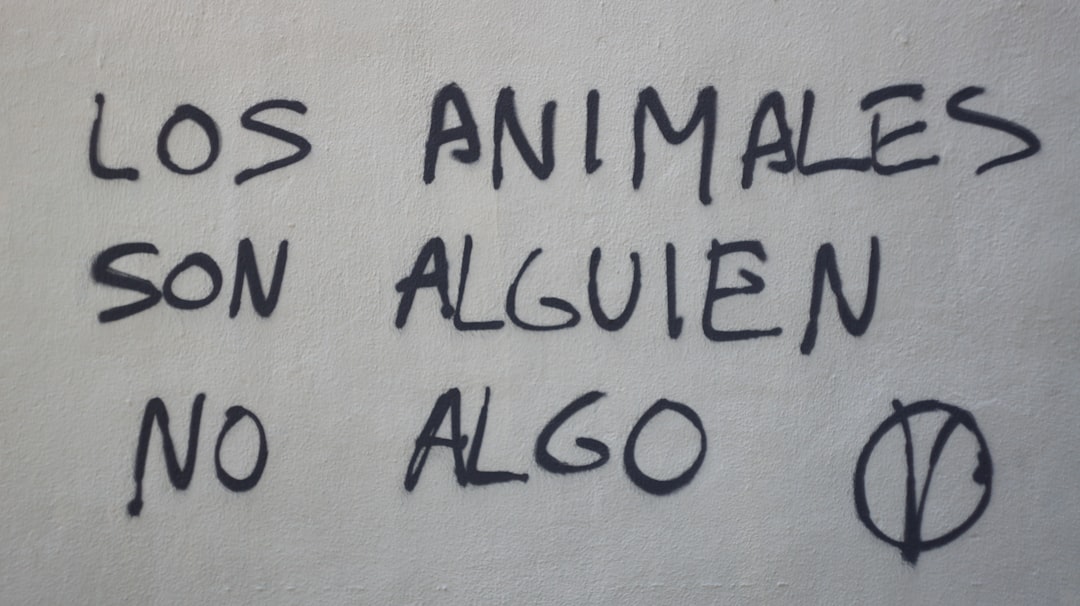 LOS ANIMALES
SON ALGUIEN
NO ALGO Ⓥ